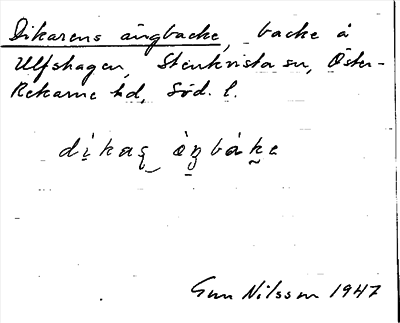 Dikarens ängbacke, backe å
Ulfshagen, Stenkvista sn, Öster-
Rekarne hd, Söd. l.
Gun Nilsson 1947